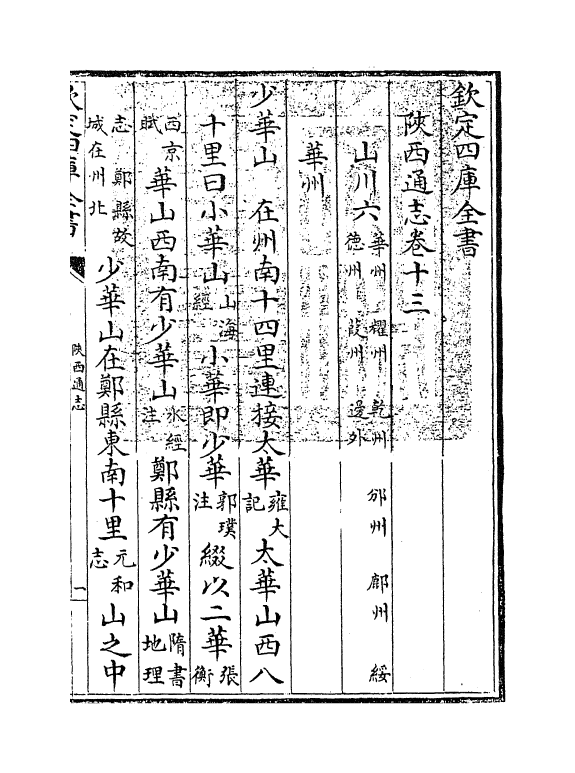 欽定四庫全書
陝西通志卷十三
山川六 華州 耀州 乾州 邠州 鄜州 綏德州 葭州 邊外
華州
少華山 在州南十四里連接太華雍大記太華山西八
十里曰小華山山海經小華即少華郭璞注綴以二華張衡
西京賦華山西南有少華山水經注鄭縣有少華山隋書地理
志 鄭縣故城在州北少華山在鄭縣東南十里元和志山之中
欽定四庫全書
陝西通志
一